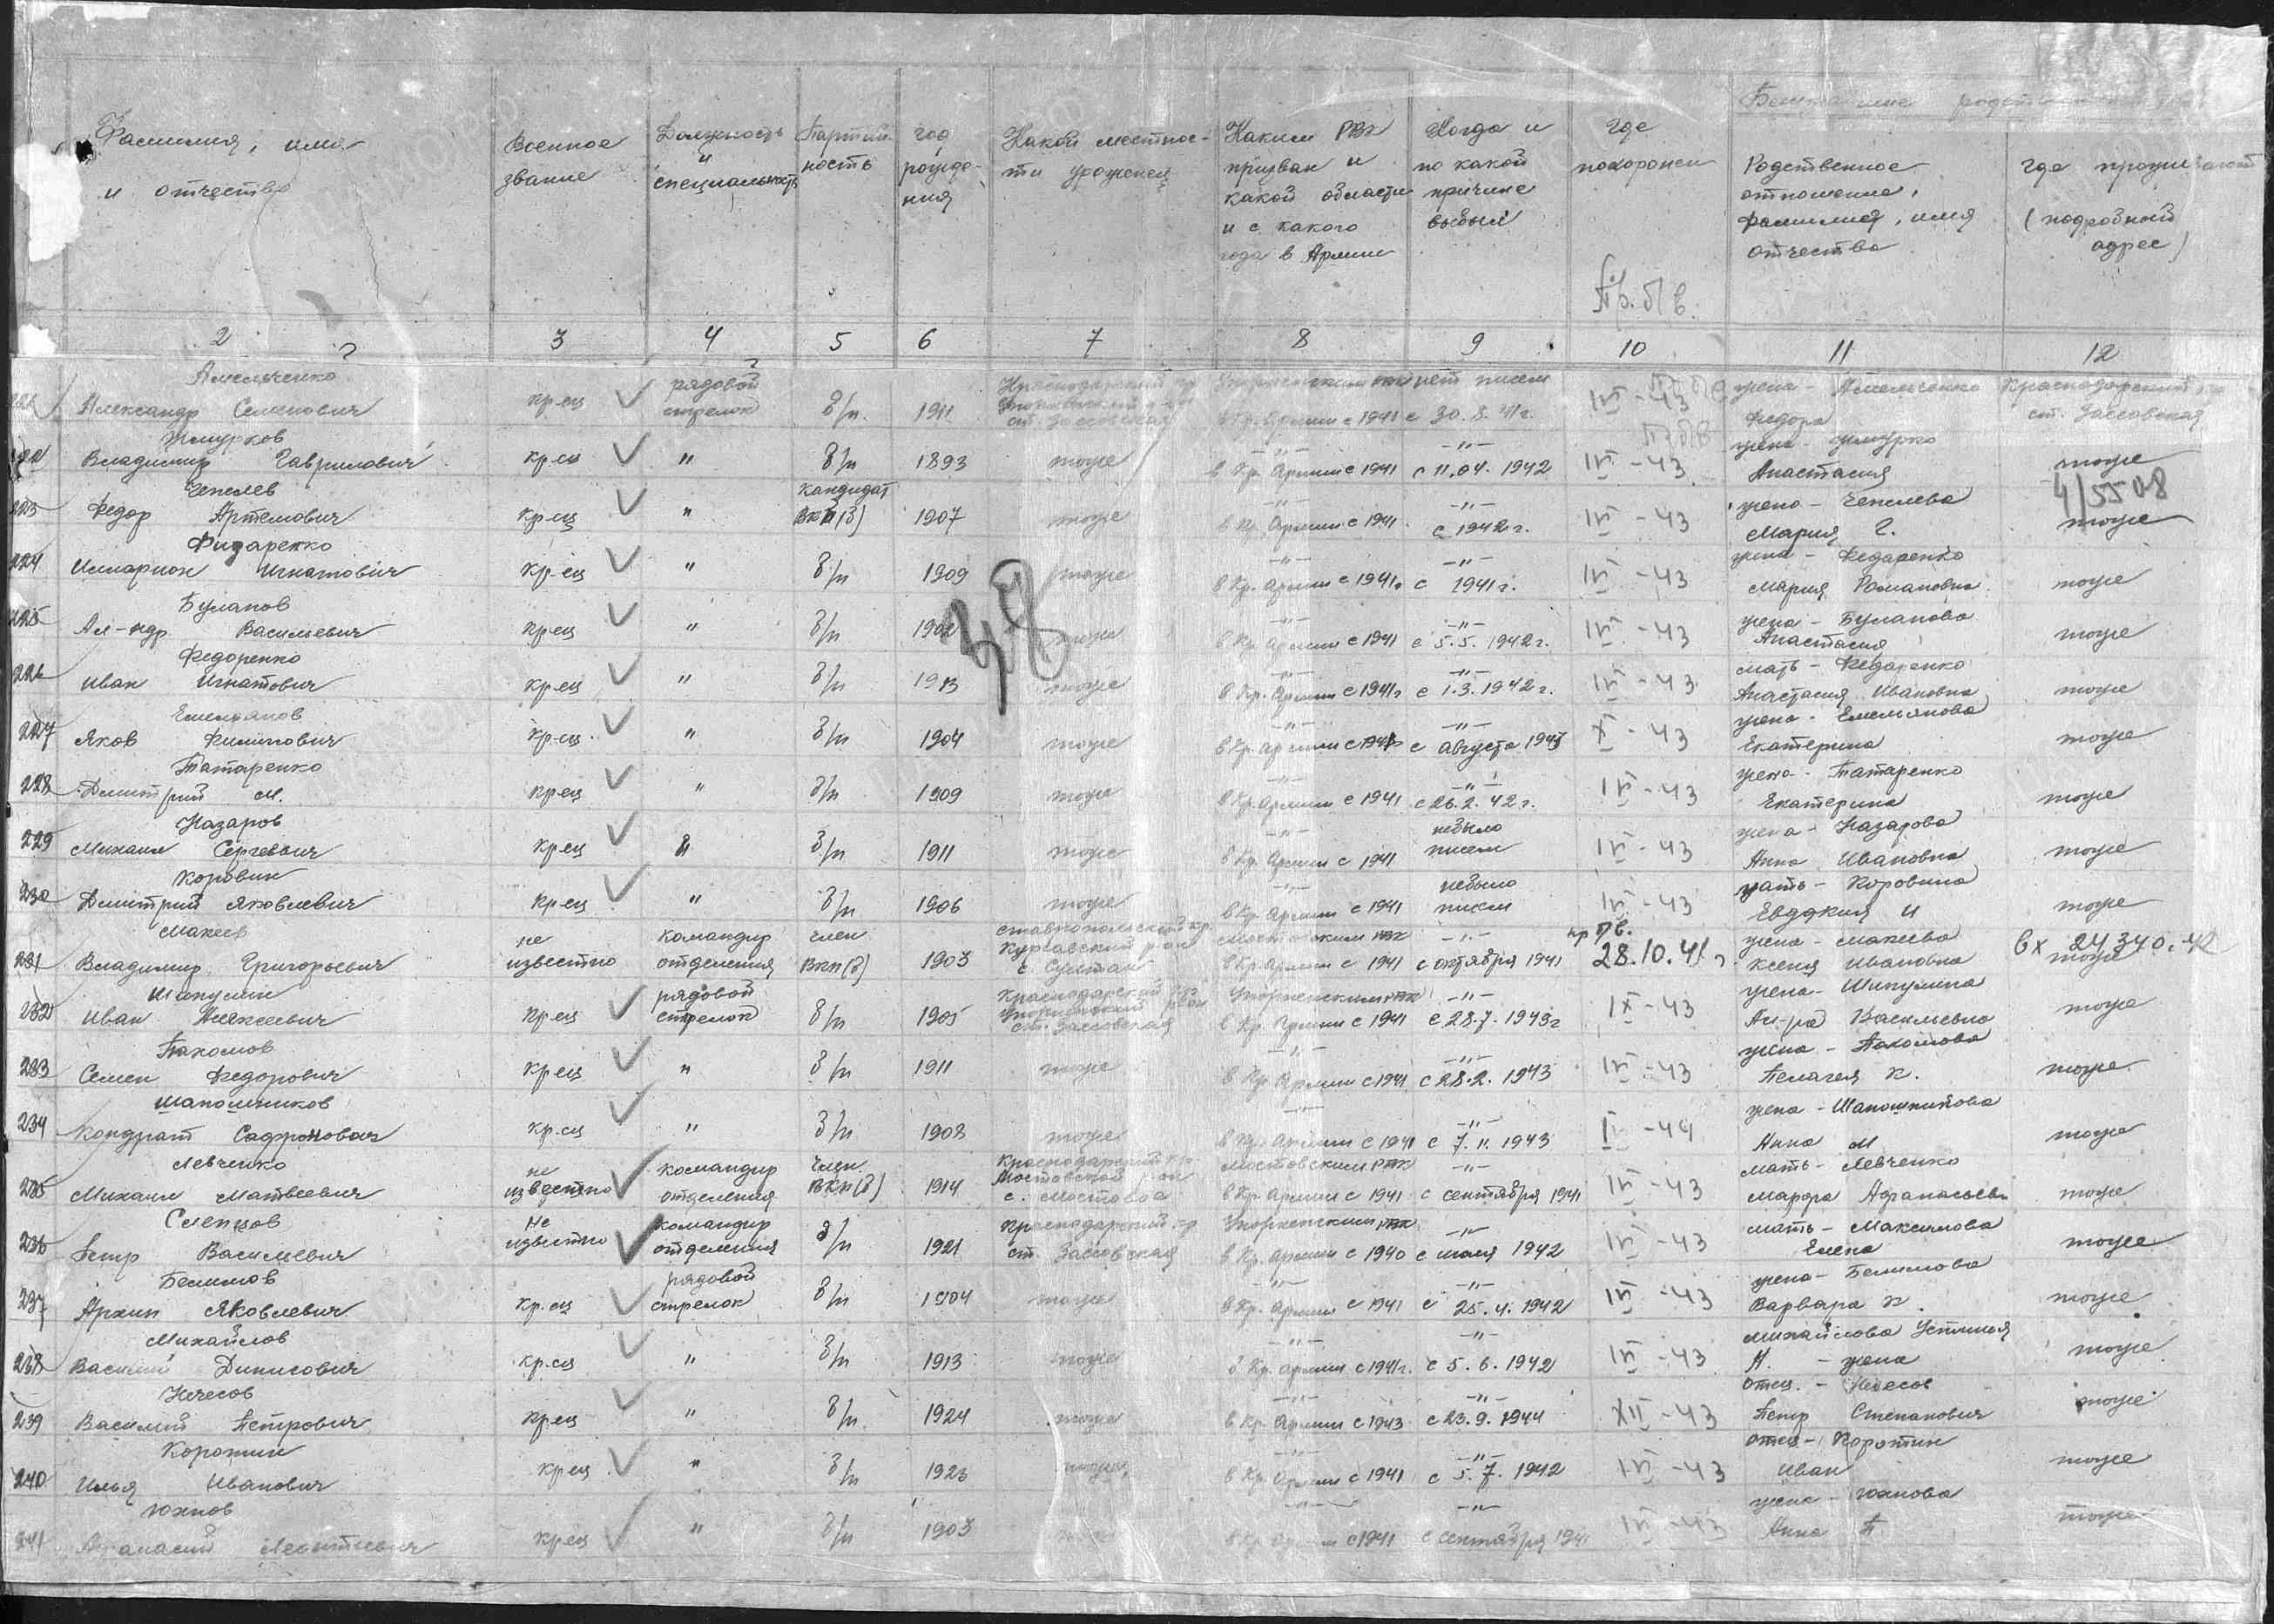 Фамилия, имя и отчество
Военное звание
Должность и специальность
Партий-ность
год рожде-ния
Какой местнос-ти уроженец
Каким РВК призван и какой области и с какого года в Армии
Когда и по какой причине выбыл
Где похоронен
Пр. б/в.
Родственное отношение, фамилия, имя отчество
где проживают (подробный адрес)
2 3 4 5 6 7 8 9 10 11 12
Амельченко Александр Семенович кр-ец рядовой стрелок б/п. 1911 Краснодарский ст. Зассовская в Кр. Армии с 1941 нет писем с 30.8.41г. IV-43 жена - Амельченко Федора Краснодарский ст. Зассовская
Жмурков Владимир Гаврилович кр-ец " б/п 1893 тоже -"- в Кр. Армии с 1941 -"- с 11.04.1942 IV-43 жена - Жмурко Анастасия тоже
4/5508
223 Чепелев Федор Артемович кр-ец " кандидат ВКП(б) 1907 тоже -"- в Кр. Армии с 1941 -"- с 1942г. IV-43 жена - Чепелева Мария Г. тоже
224 Фидаренко Илларион Игнатович кр-ец " б/п 1909 тоже -"- в Кр. Армии с 1941г -"- с 1941г. IV-43 жена - Федаренко Мария Романовна тоже
225 Буланов Ал-ндр Васильевич кр-ец " б/п 1902 тоже -"- в Кр. Армии с 1941 -"- с 5.5.1942г. IV-43 жена - Буланова Анастасия тоже
226 Федоренко Иван Игнатович кр-ец " б/п 1913 тоже -"- в Кр. Армии с 1941г -"- с 1.3.1942г. IV-43 мать - Федаренко Анастасия Ивановна тоже
227 Емельянов Яков Филипович кр-ец " б/п 1904 тоже -"- в Кр. Армии с -"- с августа 1943 X-43 жена - Емельянова Екатерина тоже
228 Татаренко Дмитрий М. кр-ец " б/п 1909 тоже -"- в Кр. Армии с 1941 -"- с 26.2.42г. IV-43 жена - Татаренко Екатерина тоже
229 Назаров Михаил Сергеевич кр-ец " б/п 1911 тоже -"- в Кр. Армии с 1941 небыло писем IV-43 жена - Назарова Анна Ивановна тоже
230 Коровин Дмитрий Яковлевич кр-ец " б/п 1906 тоже -"- в Кр. Армии с 1941 небыло писем IV-43 мать - Коровина Евдокия И тоже
231 Макеев Владимир Григорьевич не известно командир отделения член ВКП(б) 1903 Ставропольский кр. Курсавский р-он с. Султан Мостовским РВК в Кр. Армии с 1941 -"- с октября 1941 пр пв. 28.10.41г. жена - Макеева Ксения Ивановна тоже вх 24340.42
232 Шипулин Иван Алексеевич кр-ец рядовой стрелок б/п 1905 Краснодарский ст. Зассовская Упорненским РВК в Кр. Армии с 1941 -"- с 28.7.1943г IX-43 жена - Шипулина Ал-ра Васильевна тоже
233 Пахомов Семен Федорович кр-ец " б/п 1911 тоже -"- в Кр. Армии с 1941 -"- с 28.2.1943 IV-43 жена - Пахомова Пелагея К. тоже
234 Шапошников Кондрат Сафронович кр-ец " б/п 1908 тоже -"- в Кр. Армии с 1941 -"- с 7.11.1943 -44 жена - Шапошникова Анна М тоже
235 Левченко Михаил Матвеевич не известно командир отделения Член ВКП(б) 1914 Краснодарский кр. Мостовской р-он с. Мостовое Мостовским РВК в Кр. Армии с 1941 -"- с сентября 1941 IV-43 мать - Левченко Марфа Афанасьев тоже
236 Слепцов Петр Васильевич Не известно командир отделения б/п 1921 Краснодарский кр ст. Зассовская Упорненским РВК в Кр. Армии с 1940 -"- с июля 1942 IV-43 мать - Максимова Елена тоже
237 Белимов Архип Яковлевич кр-ец рядовой стрелок б/п 1904 тоже -"- в Кр. Армии с 1941 -"- с 25.4.1942 IV-43 жена - Белимова Варвара К. тоже
238 Михайлов Василий Динисович кр-ец " б/п 1913 тоже -"- в Кр. Армии с 1941г. -"- с 5.6.1942 IV-43 Михайлова Устиния Н. - жена тоже
239 Нечесов Василий Петрович кр-ец " б/п 1924 тоже -"- в Кр. Армии с 1943 -"- с 23.9.1944 XII-43 отец - Петр Степанович тоже
240 Коротин Илья Иванович кр-ец " б/п 1923 тоже -"- в Кр. Армии с 1941 -"- с 5.7.1942 IV-43 отец - Коротин Иван тоже
241 Юхнов Афанасий Леонтиевич кр-ец " б/п 1903 -"- в Кр. Армии с 1941 -"- с сентября 1941 IV-43 жена - Юхнова Анна П. тоже